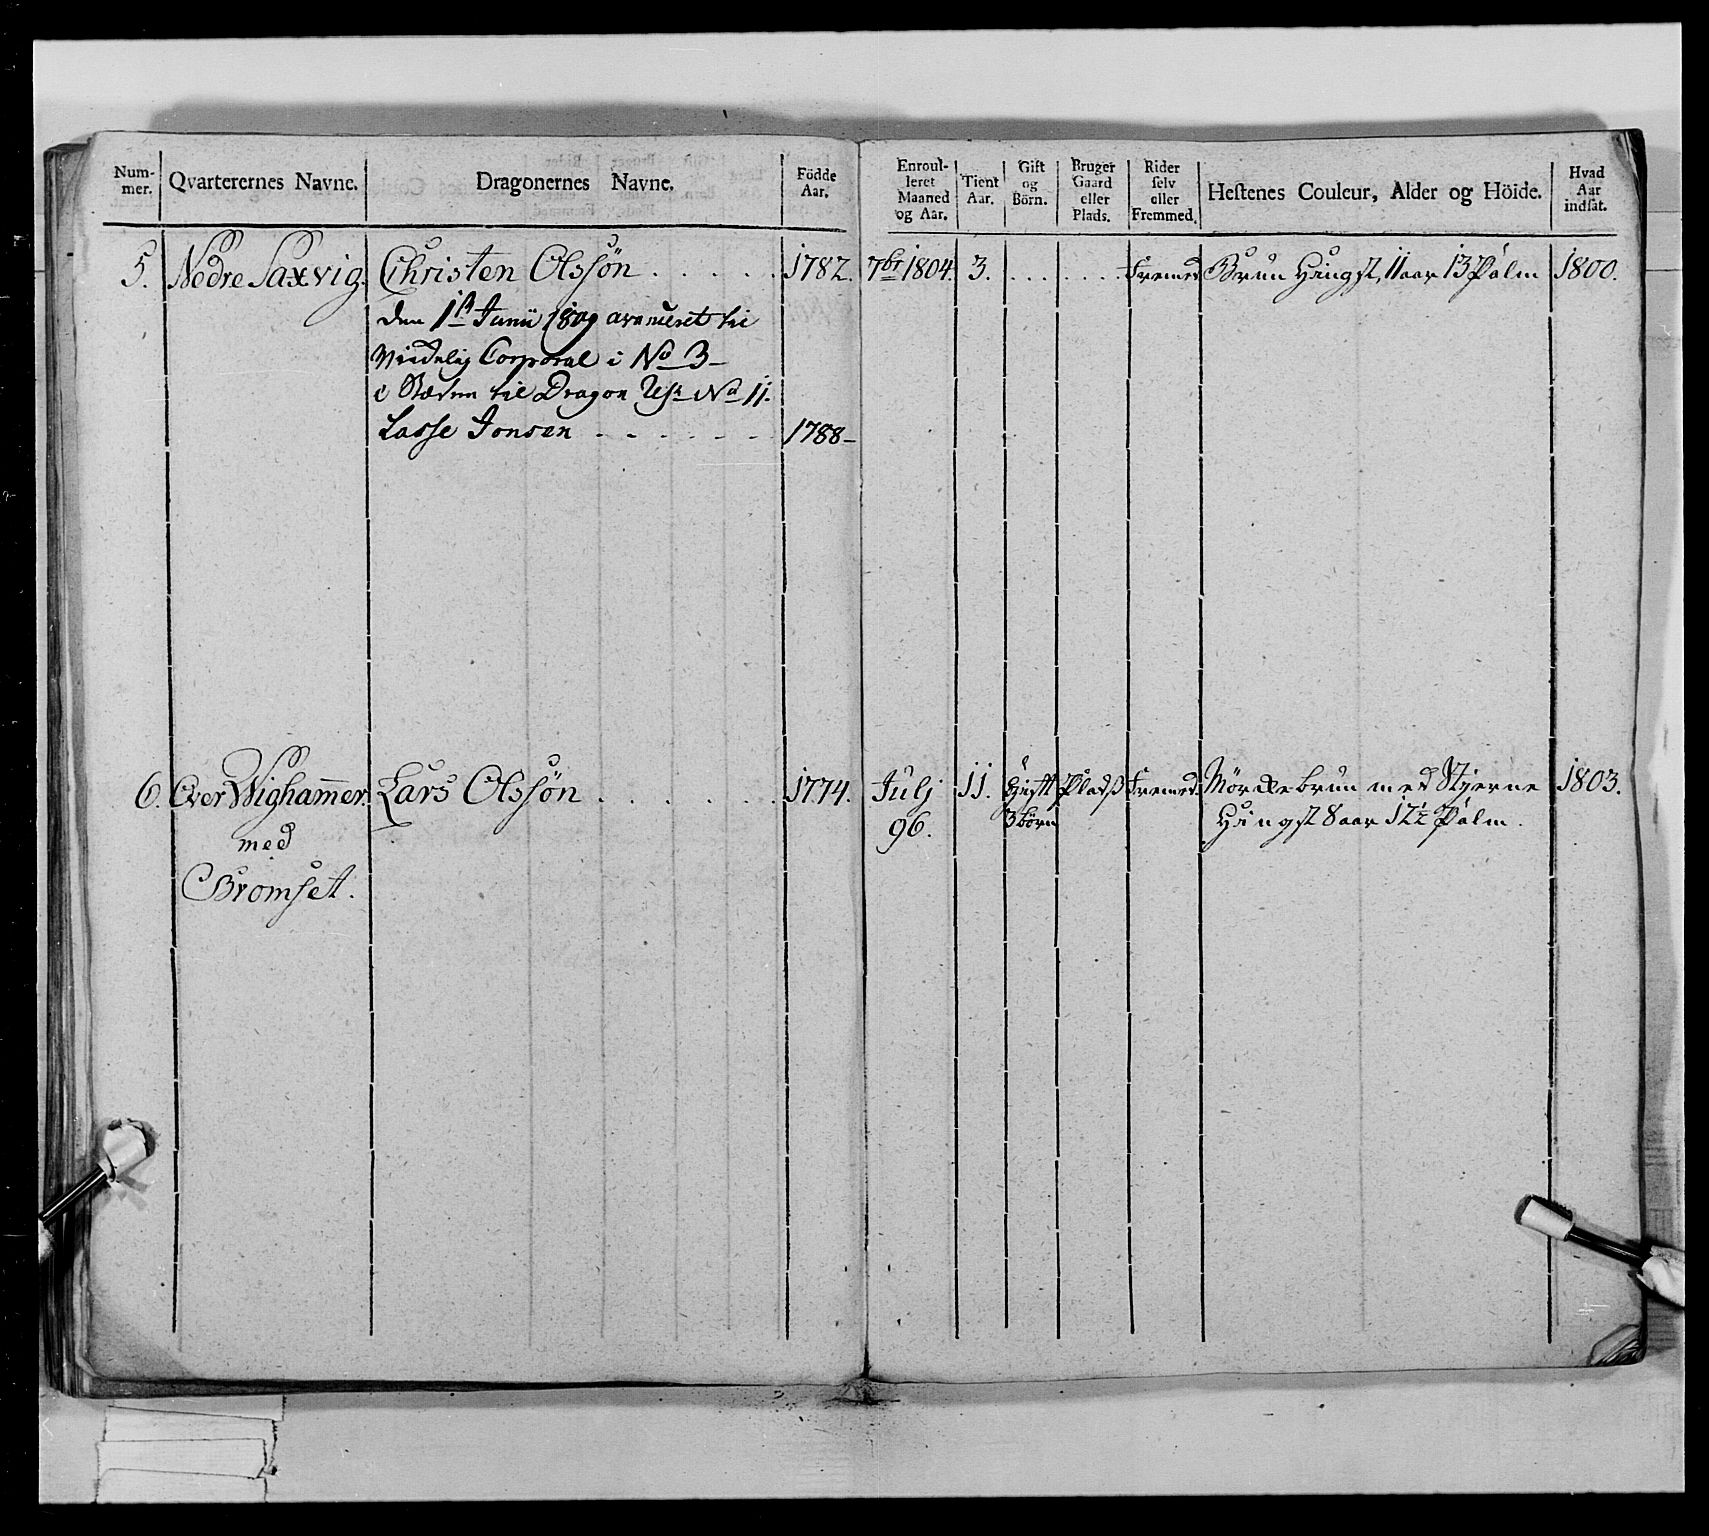 Num-
mer.
Qvarterernes Navne.
Dragonernes Navne.
Födde
Aar.
Enroul-
leret
Maaned
og Aar.
Tient
Aar.
Gift
og
Börn.
Bruger
Gaard
eller
Plads.
Rider
selv
eller
Fremmed.
Hestenes Couleur, Alder og Höide.
Hvad
Aar
indsat.
5. Nedre Saxvig. Christen Olssön . . . . . 1782. 7br 1804. 3. . . . . . . Fremed Brun Hingst, 11 aar 13 Palm 1800.
den 1st Junii 1809 avanceret til
Corporal i No 3
til Dragon No 11.
Lasse Jonsen . . . . . . 1788
6. Over Wighammer. Lars Olssön . . . . . . 1774. Julj 11. Gift Pladß Fremed. Mörckebrun med Stjerne 1803.
96. 3 börn Hingst 8 aar 12½ Palm.
med
Bromset.